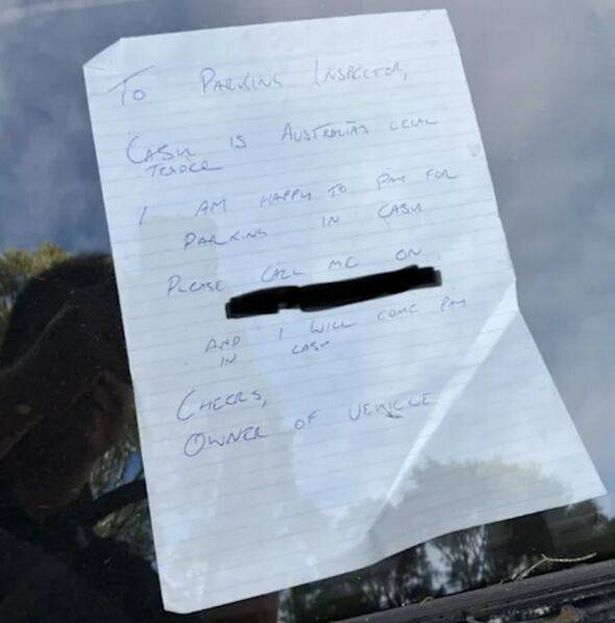 TO PARKING INSPECTOR,
CASH IS AUSTRALIAS LEGAL
TENDER
I AM HAPPY TO PAY FOR
PARKING IN CASH
PLEASE CALL ME ON
AND I WILL COME PAY
IN CASH
CHEERS,
OWNER OF VEHICLE